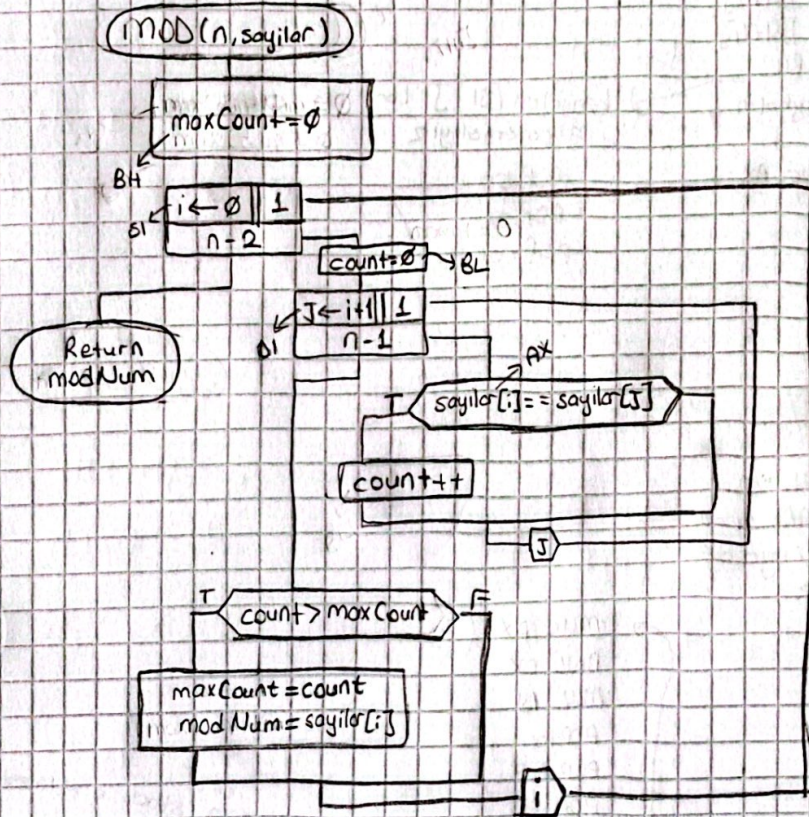 MOD(n, sayilar)
maxCount=Ø
BH
i ← Ø 1
SI
n-2
count=Ø BL
J ← i+1 1
DI
n-1
Return
modNum
AX
T sayilar[i]==sayilar[J]
count++
J
T count > maxCount F
maxCount=count
modNum=sayilar[i]
i